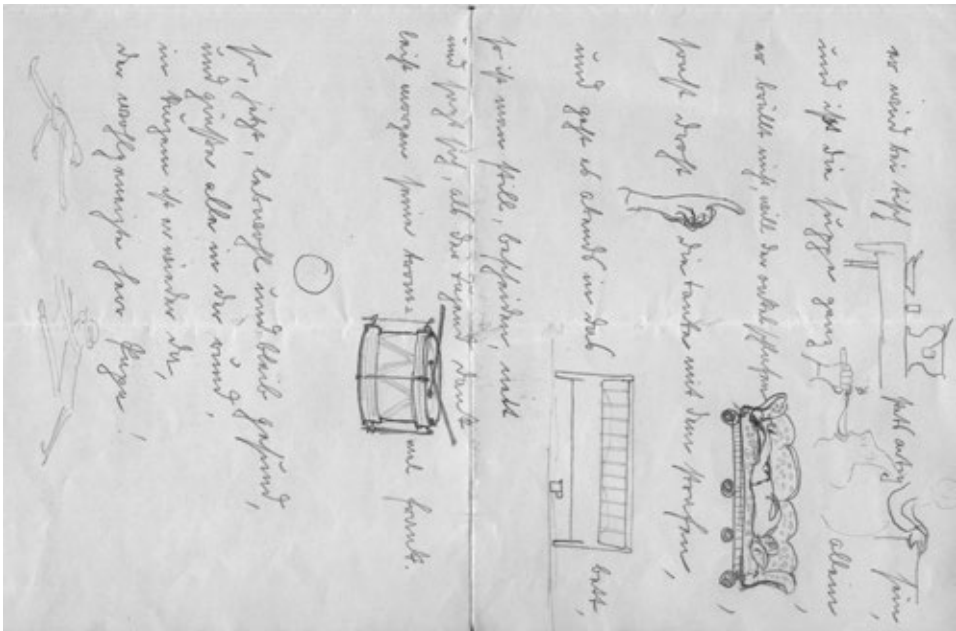 er wird bei tisch stets artig sein,
und ißt die suppe ganz allein,
er brüllt nicht, will der onkel schlafen,
sonst droht die tante mit dem strafen,
und geht es abends in das bett,
so ist man still, bescheiden, nett
und sagt sich, als der tugend dank
morgen seine tromm= mel kommt.
So, jetzt, lebewohl und bleib gesund,
und grüße alle in der rund,
in kurzem ist er wieder da,
der wohlgeneigte herr Papa!